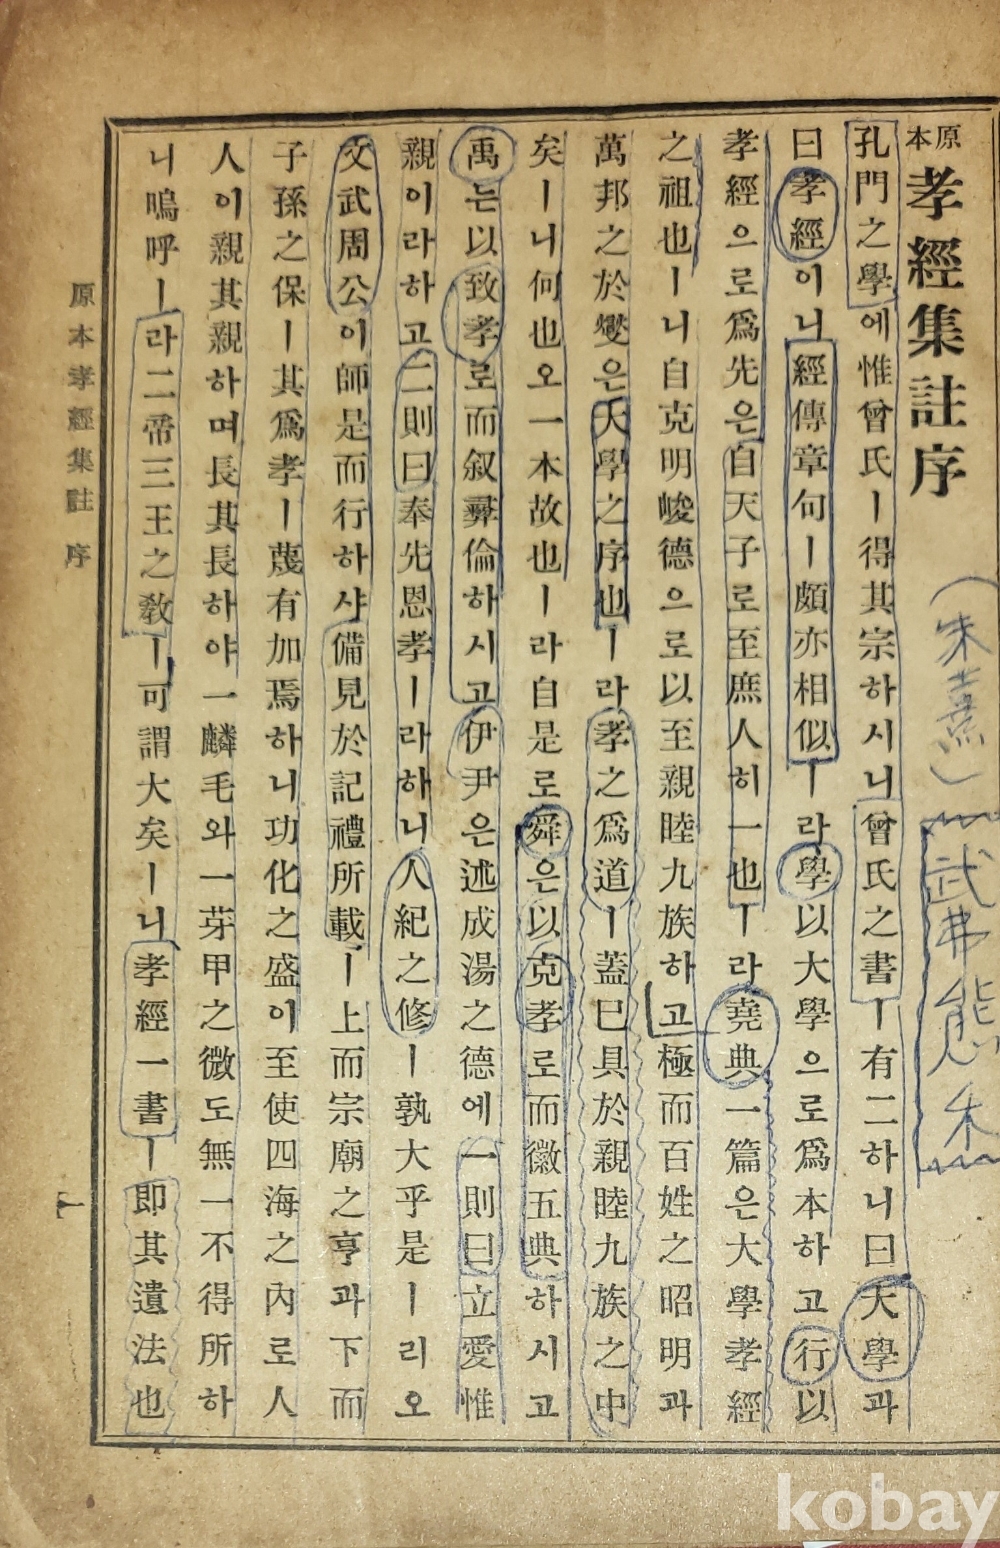 原本
孝經集註序
孔門之學에惟曾氏ㅣ得其宗하시니曾氏之書ㅣ有二하니曰大學과
曰孝經이니經傳章句ㅣ頗亦相似ㅣ라學以大學으로爲本하고行以
孝經으로爲先은自天子로至庶人히一也ㅣ라堯典一篇은大學孝經
之祖也ㅣ니自克明峻德으로以至親睦九族하고極而百姓之昭明과
萬邦之於變은大學之序也ㅣ라孝之爲道ㅣ蓋已具於親睦九族之中
矣ㅣ니何也오一本故也ㅣ라自是로舜은以克孝로而徽五典하시고
禹는以致孝로而叙彛倫하시고伊尹은述成湯之德에一則曰立愛惟
親이라하고二則曰奉先思孝ㅣ라하니人紀之修ㅣ孰大乎是ㅣ리오
文武周公이師是而行하샤備見於記禮所載ㅣ上而宗廟之享과下而
子孫之保ㅣ其爲孝ㅣ蔑有加焉하니功化之盛이至使四海之內로人
人이親其親하며長其長하야一麟毛와一芽甲之微도無一不得所하
니嗚呼ㅣ라二帝三王之敎ㅣ可謂大矣ㅣ니孝經一書ㅣ即其遺法也
原本孝經集註 序
一
(朱熹)
武弗
朱
kobay